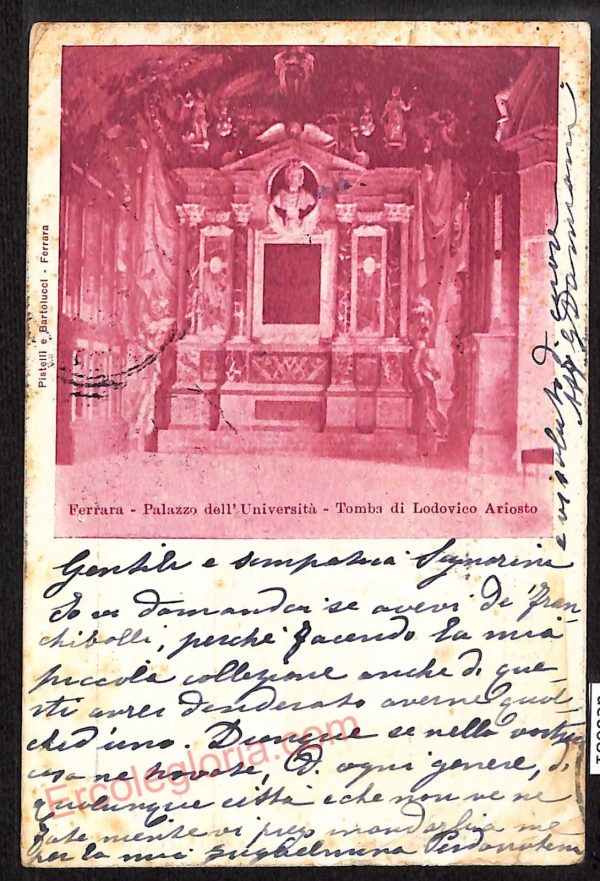 Pistelli e Bartolucci - Ferrara
Ferrara - Palazzo dell'Università - Tomba di Lodovico Ariosto
Gentile e simpatica Signorine
Io vi domandai se avevi dei fran=
chibolli, perchè facendo la mia
piccola collezione anche di que=
sti avrei desiderato averne qual=
ched'uno. Dunque se nella vostra
casa ne trovate, d'ogni genere, di
qualunque città e che non ve ne
fate niente vi prego mandarli a me
per la mia Guglielmina
e vi saluto di cuore
Ercolegloria.com